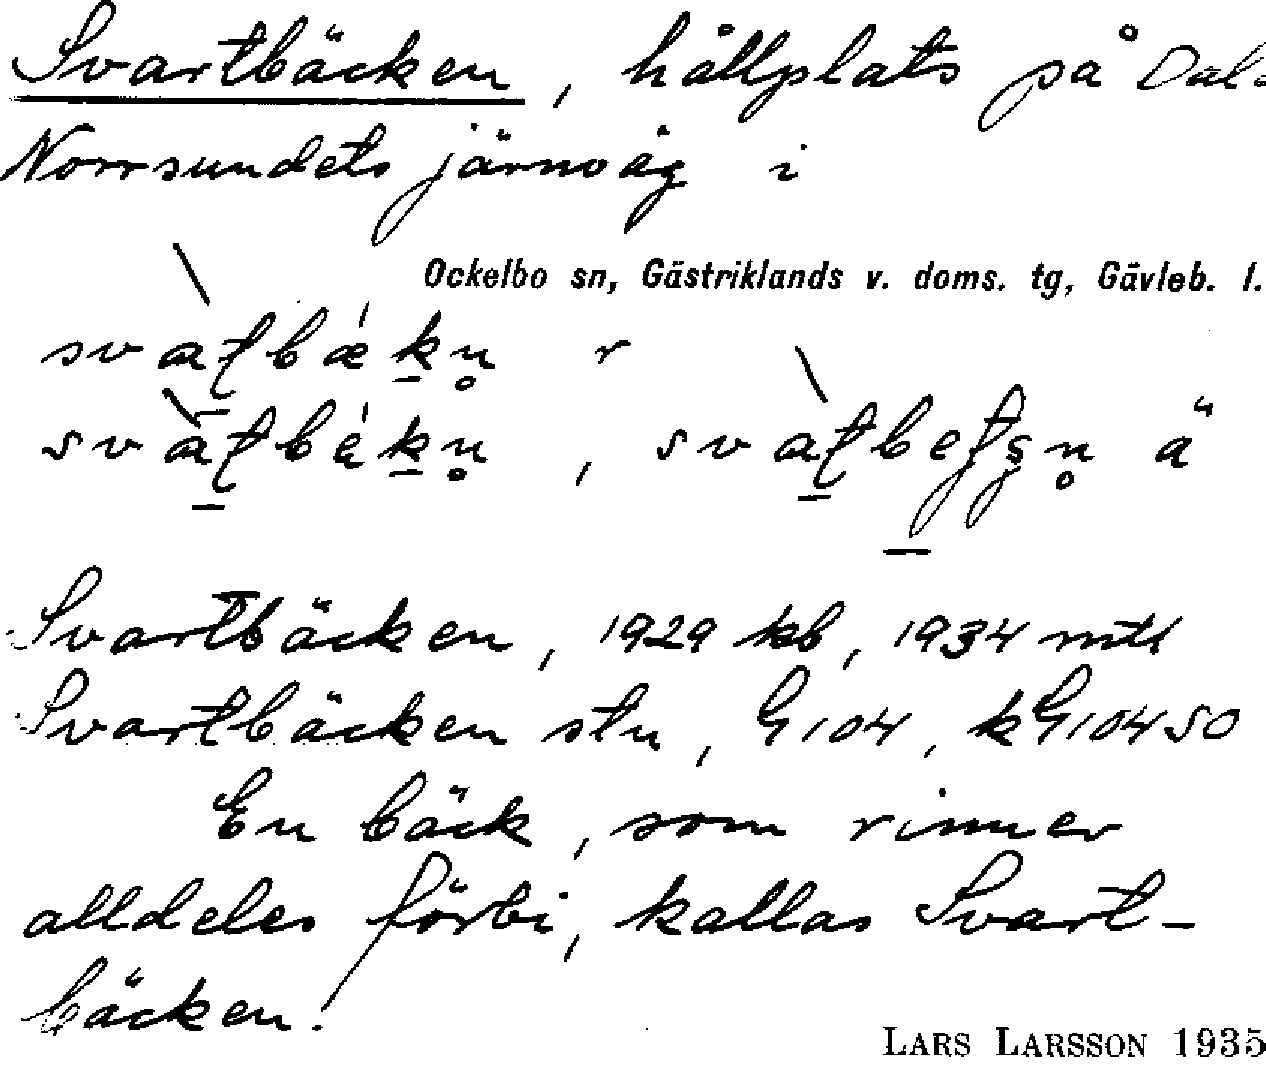 Svartbäcken, hållplats på Dal=
Norrsundets järnväg i
Ockelbo sn, Gästriklands v. doms. tg, Gävleb. l.
r
, ä
Svartbäcken, 1929 kb, 1934 mtl
Svartbäcken stn, G104, kG10450
En bäck, som rinner
alldeles förbi, kallas Svart-
bäcken.
LARS LARSSON 1935